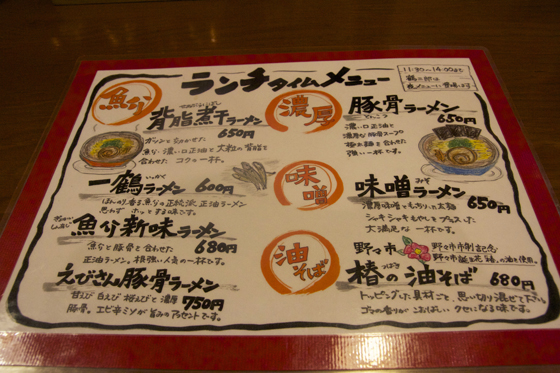 ランチタイムメニュー
11:30〜14:00まで
魚介
背脂煮干ラーメン
650円
ガツンと合わせた
魚介、濃い口正油と大粒の背脂を
合わせた コクの一杯。
一鶴ラーメン 600円
いっかく
魚介新味ラーメン
680円
魚介と豚骨と合わせた
正油ラーメン、根強い人気の一杯です。
えびさん豚骨ラーメン
750円
甘えび 白えび 桜えびと濃厚
豚骨。エビ辛ミソが旨みのアクセントです。
濃厚
豚骨ラーメン
とんこつ
650円
濃い口正油と
濃厚な豚骨スープの
極太麺を合わせた
強い一杯です。
味噌
味噌ラーメン
みそ
650円
シャキシャキもやしをプラスした
大満足な一杯です。
油そば
野々市
野々市市制記念
椿の油そば 680円
つばき
トッピングした具材ごと、思い切り混ぜて下さい。
ゴマの香りがこおばしい、クセになる味です。